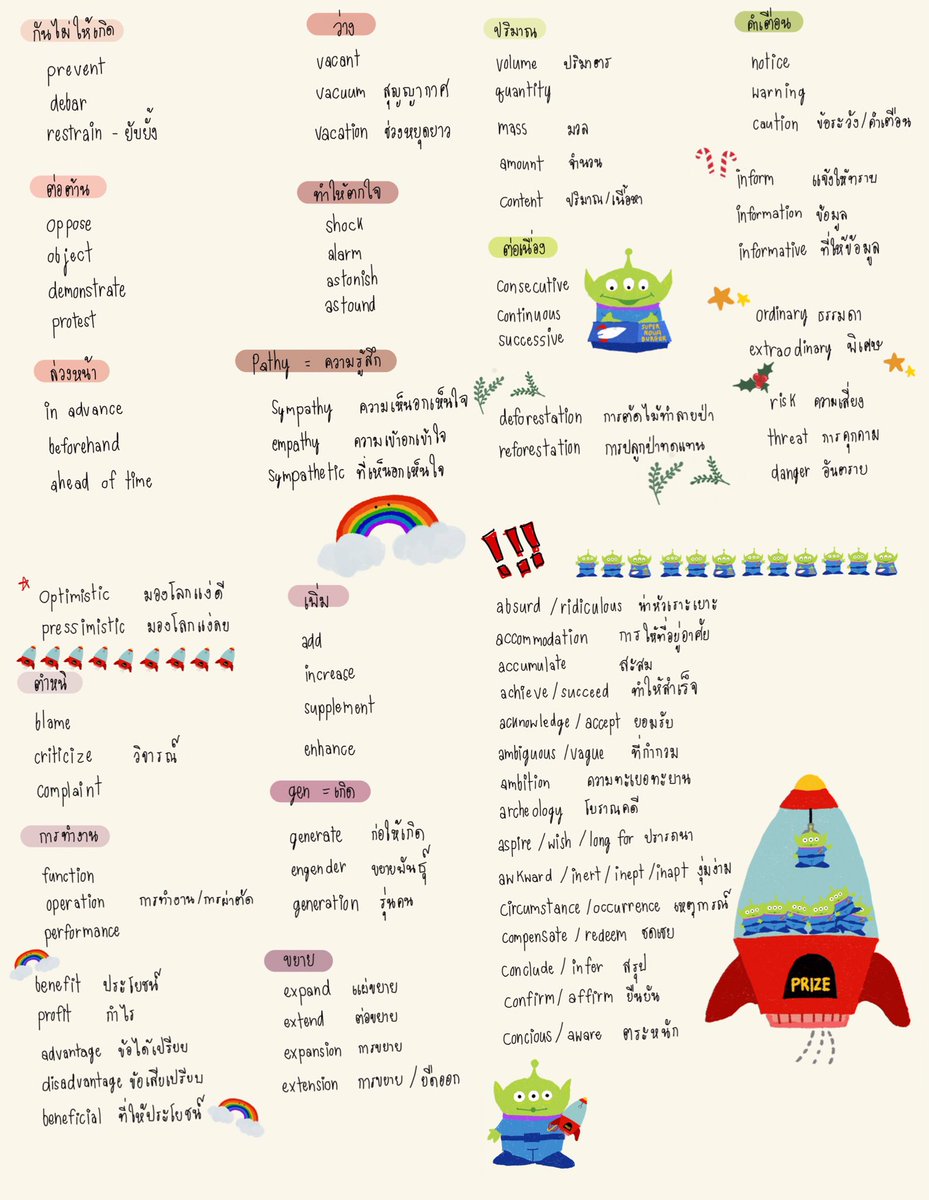 กันไม่ให้เกิด
prevent
debar
restrain - ยับยั้ง
ต่อต้าน
oppose
object
demonstrate
protest
ล่วงหน้า
in advance
beforehand
ahead of time
ว่าง
vacant
vacuum สุญญากาศ
vacation ช่วงหยุดยาว
ทำให้ตกใจ
shock
alarm
astonish
astound
Pathy = ความรู้สึก
Sympathy ความเห็นอกเห็นใจ
empathy ความเข้าอกเข้าใจ
Sympathetic ที่เห็นอกเห็นใจ
ปริมาณ
volume ปริมาตร
quantity
mass มวล
amount จำนวน
content ปริมาณ/เนื้อหา
ต่อเนื่อง
consecutive
continuous
successive
SUPER
NOVA
BURGER
deforestation การตัดไม้ทำลายป่า
reforestation การปลูกป่าทดแทน
คำเตือน
notice
warning
caution ข้อระวัง/คำเตือน
inform แจ้งให้ทราบ
information ข้อมูล
informative ที่ให้ข้อมูล
ordinary ธรรมดา
extraodinary พิเศษ
risk ความเสี่ยง
threat การคุกคาม
danger อันตราย
Optimistic มองโลกแง่ดี
pressimistic มองโลกแง่ลบ
ตำหนิ
blame
criticize วิจารณ์
complaint
การทำงาน
function
operation การทำงาน/การผ่าตัด
performance
benefit ประโยชน์
profit กำไร
advantage ข้อได้เปรียบ
disadvantage ข้อเสียเปรียบ
beneficial ที่ให้ประโยชน์
เพิ่ม
add
increase
supplement
enhance
gen = เกิด
generate ก่อให้เกิด
engender ขยายพันธุ์
generation รุ่นคน
ขยาย
expand แผ่ขยาย
extend ต่อขยาย
expansion การขยาย
extension การขยาย / ยืดออก
!!!
absurd / ridiculous น่าหัวเราะเยาะ
accommodation การให้ที่อยู่อาศัย
accumulate สะสม
achieve / succeed ทำให้สำเร็จ
acknowledge / accept ยอมรับ
ambiguous / vague ที่กำกวม
ambition ความทะเยอทะยาน
archeology โบราณคดี
aspire / wish / long for ปรารถนา
awkward / inert / inept / inapt งุ่มง่าม
circumstance / occurrence เหตุการณ์
compensate / redeem ชดเชย
conclude / infer สรุป
confirm / affirm ยืนยัน
concious / aware ตระหนัก
PRIZE